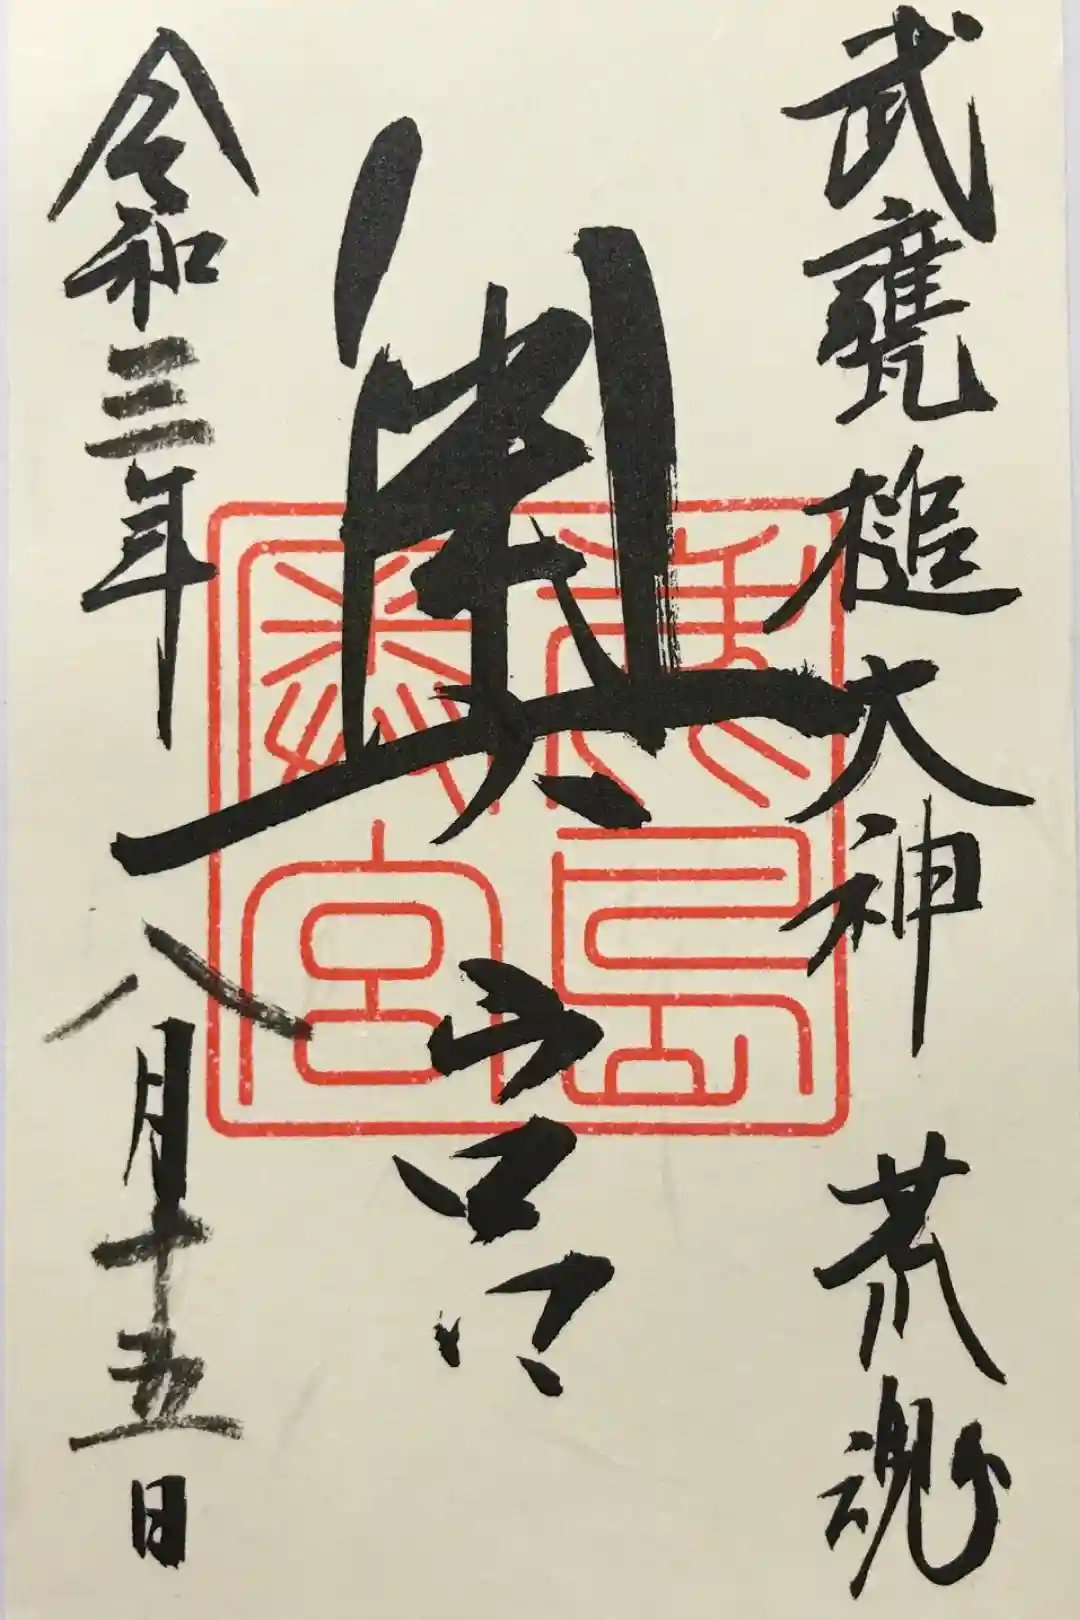 武甕槌大神 荒魂
奥宮
鹿島
神宮
令和三年八月十五日